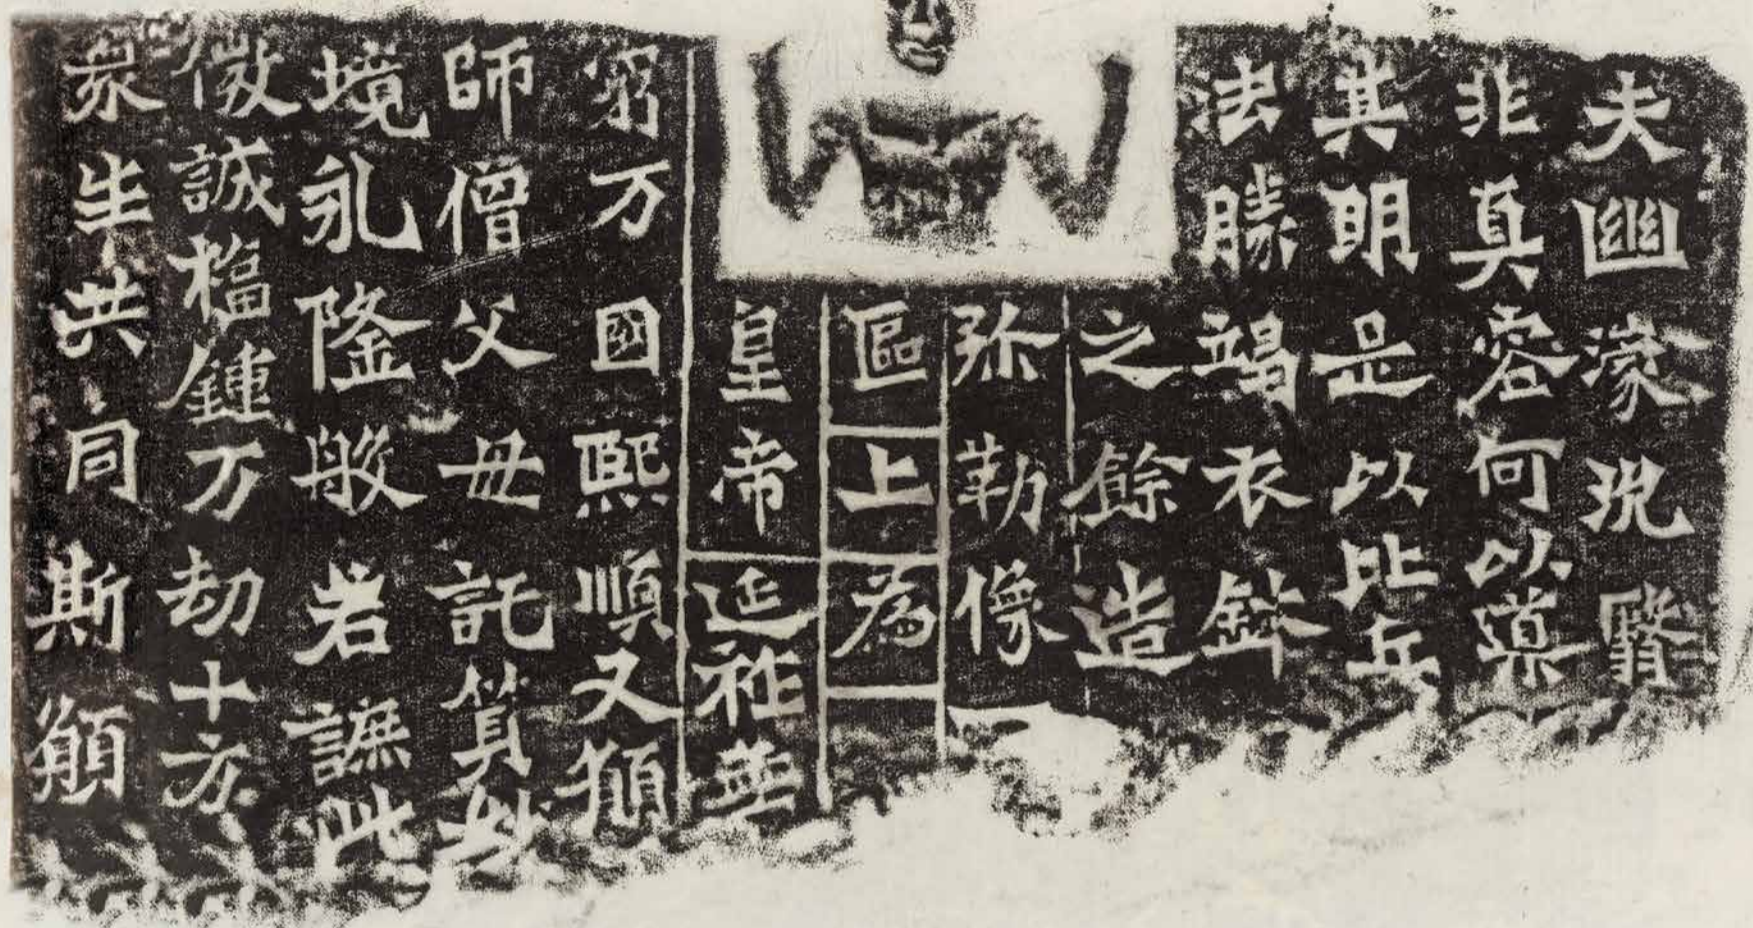 夫幽濛翳
非真容何以導
其明是以比丘
法勝竭衣鉢
之餘造
弥勒像
區上為
皇帝延祚華
窮万國熙順又願
師僧父母託質妙
境永隆般若譕此
微誠福鍾万劫十方
衆生共同斯願